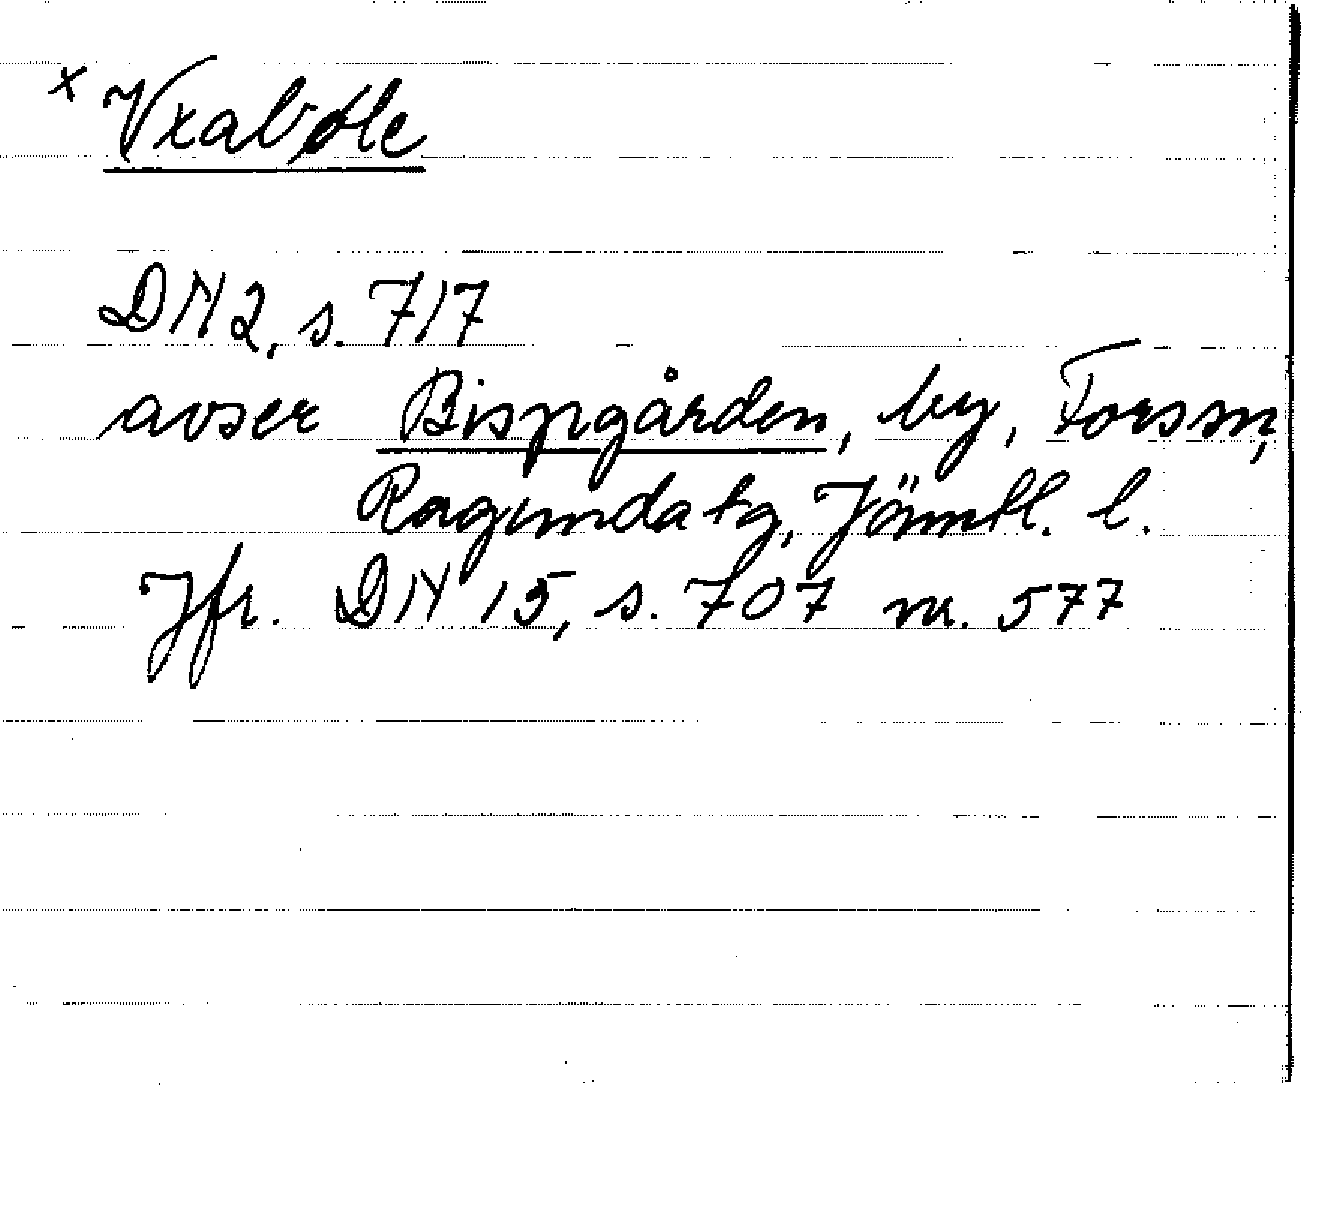 x Vxabøle
DN 2, s. 717
avser Bispgården, by, Forssn,
Ragunda tg, Jämtl. l.
Jfr. DN 15, s. 707 nr. 577